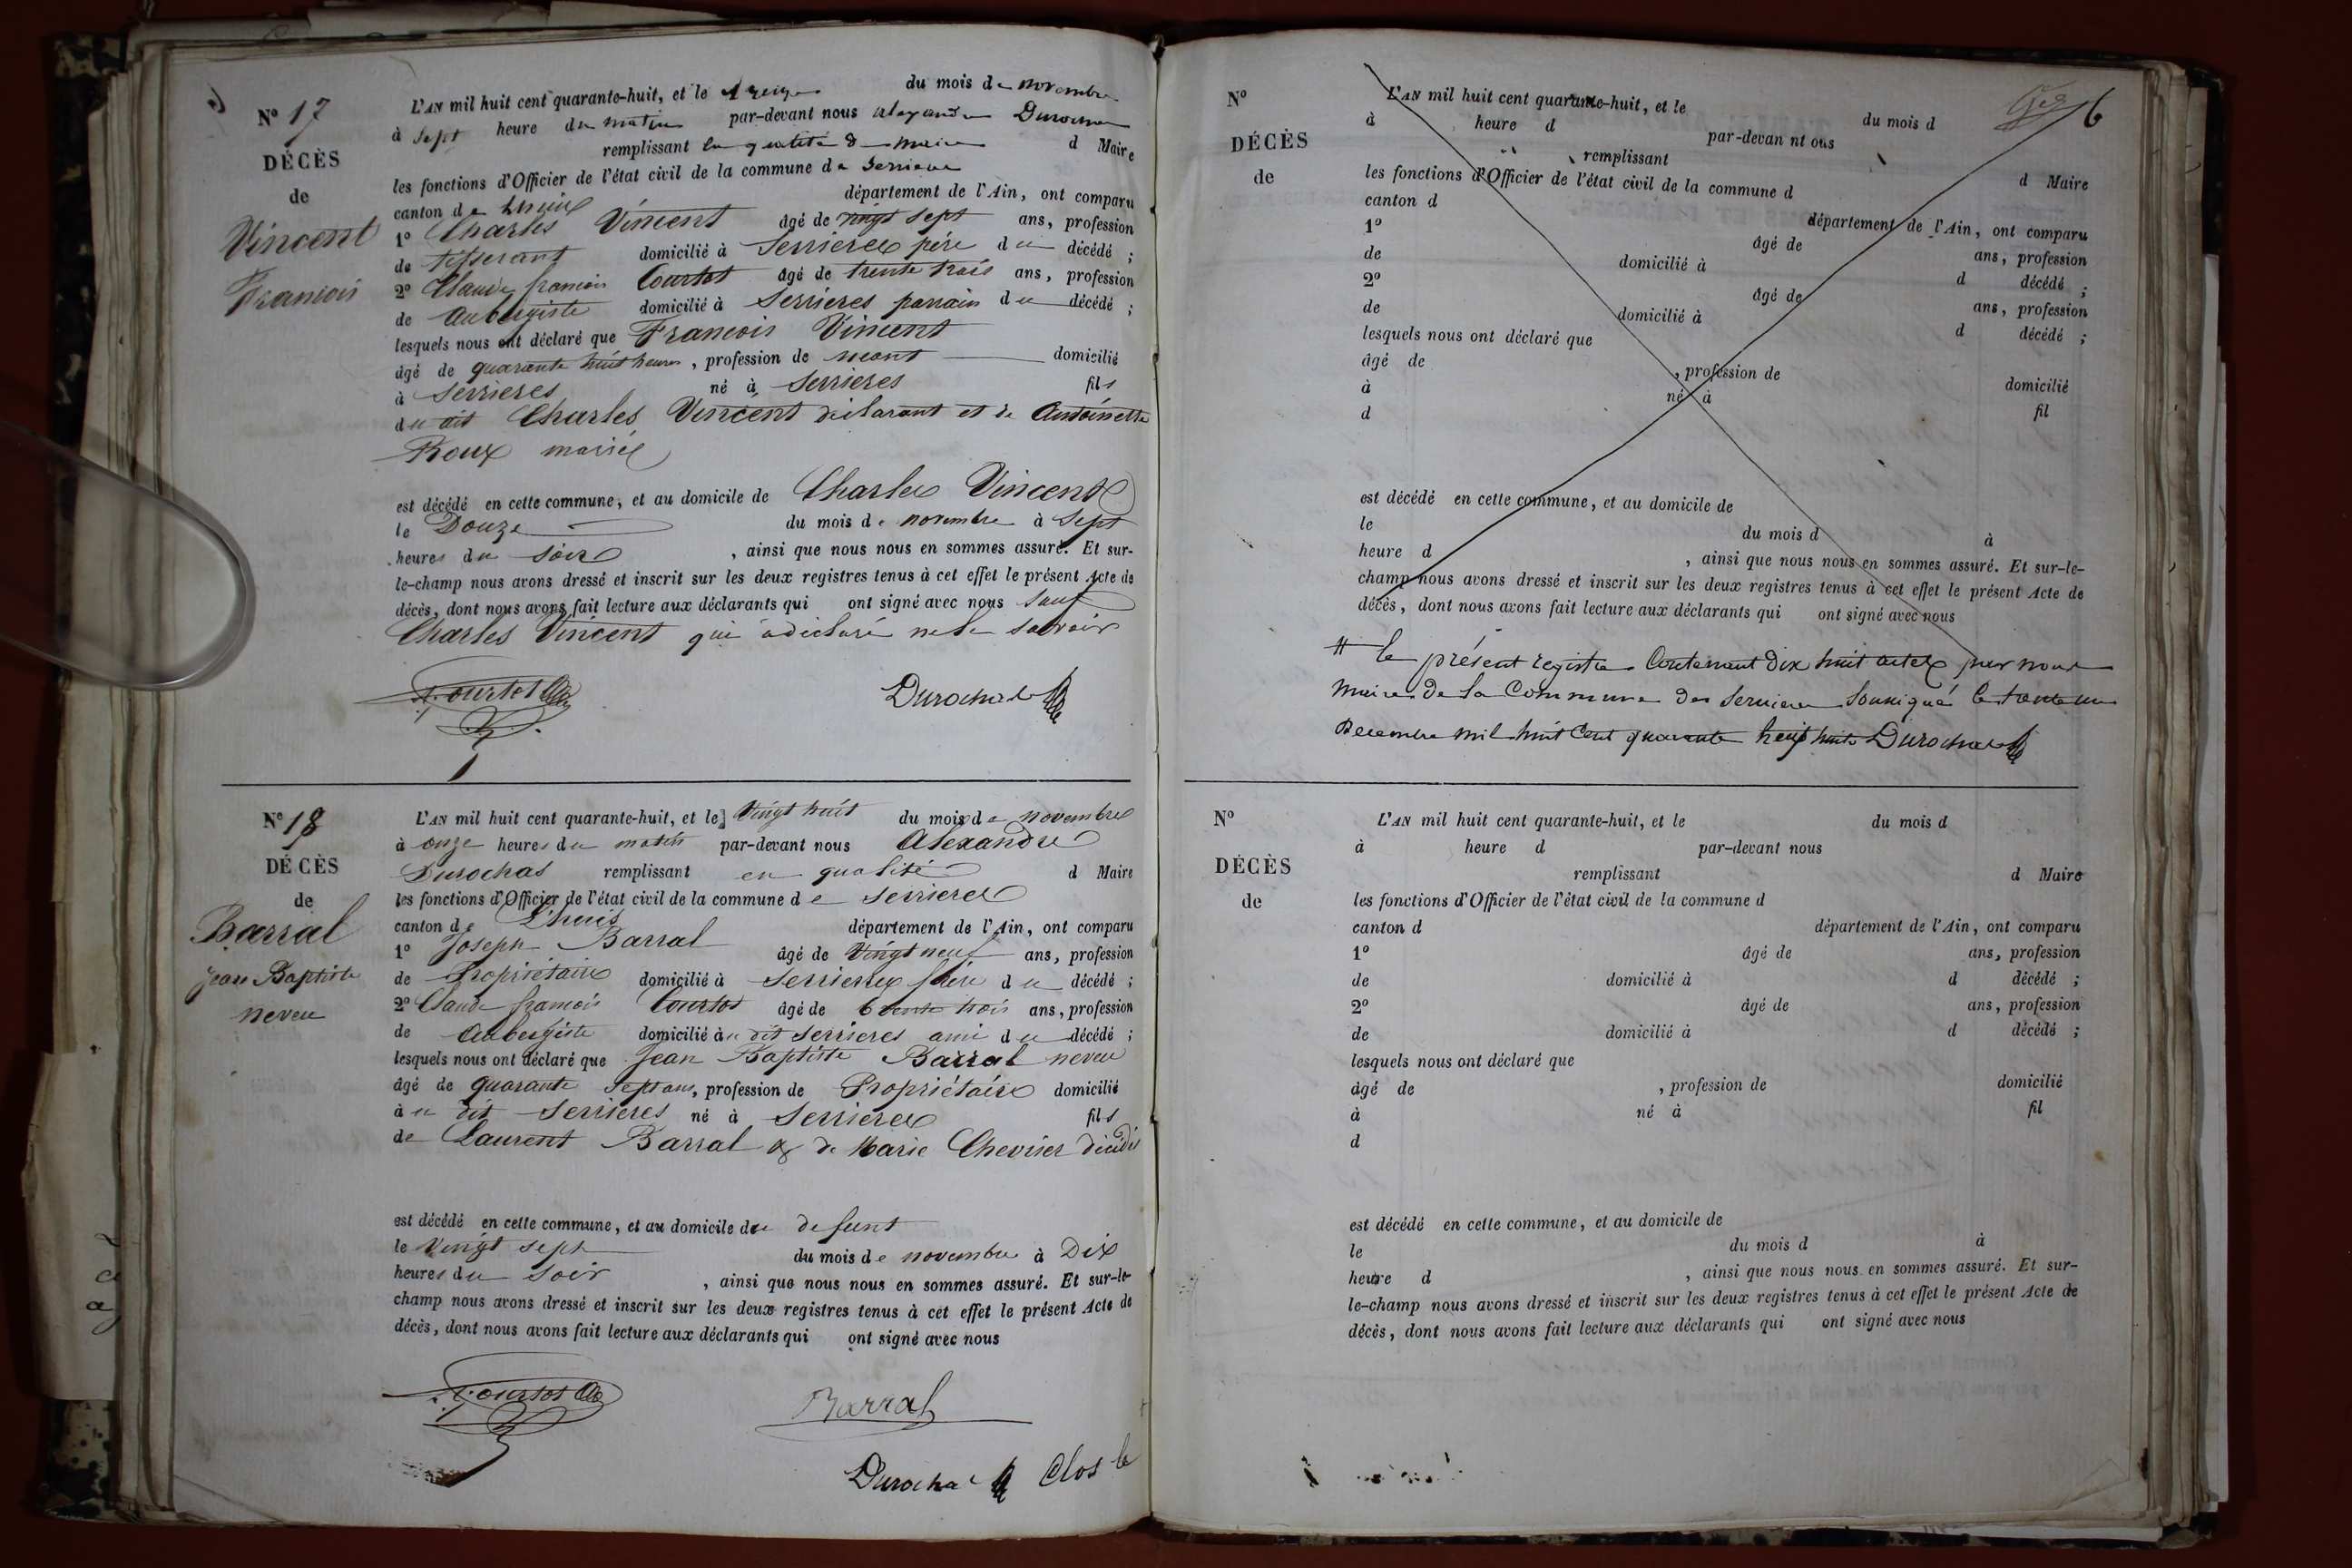 N° 17
DÉCÈS
de
Vincent
Francois
L'AN mil huit cent quarante-huit, et le treize du mois de novembre
à sept heure du matin par-devant nous alexandre Durochat
remplissant en qualité de maire d Maire
les fonctions d'Officier de l'état civil de la commune de Serrieres
canton de Lhuis département de l'Ain, ont comparu
1° Charles Vincent âgé de vingt sept ans, profession
de tisserant domicilié à Serrieres père du décédé ;
2° Claude francois Courtot âgé de trente trois ans, profession
de Aubergiste domicilié à Serrieres parrain du décédé ;
lesquels nous ont déclaré que Francois Vincent
âgé de quarante huit heures, profession de neant domicilié
à Serrieres né à Serrieres fils
du dit Charles Vincent déclarant et de Antoinette
Roux mariés
est décédé en cette commune, et au domicile de Charles Vincent
le Douze du mois de novembre à Sept
heures du soir , ainsi que nous nous en sommes assuré. Et sur-
le-champ nous avons dressé et inscrit sur les deux registres tenus à cet effet le présent Acte de
décès, dont nous avons fait lecture aux déclarants qui ont signé avec nous sauf
Charles Vincent qui a déclaré ne le savoir
Courtot Durochat
N° 18
DÉCÈS
de
Barral
Jean Baptiste
neveu
L'AN mil huit cent quarante-huit, et le Vingt huit du mois de novembre
à onze heures du matin par-devant nous Alexandre
Durochat remplissant en qualité d Maire
les fonctions d'Officier de l'état civil de la commune de Serrieres
canton de Lhuis département de l'Ain, ont comparu
1° Joseph Barral âgé de Vingt neuf ans, profession
de Propriétaire domicilié à Serrieres frère du décédé ;
2° Claude francois Courtot âgé de trente trois ans, profession
de Aubergiste domicilié au dit Serrieres ami du décédé ;
lesquels nous ont déclaré que Jean Baptiste Barral neveu
âgé de quarante sept ans, profession de Propriétaire domicilié
au dit Serrieres né à Serrieres fils
de Laurent Barral & de Marie Chevrier décédés
est décédé en cette commune, et au domicile du defunt
le Vingt sept du mois de novembre à Dix
heures du soir , ainsi que nous nous en sommes assuré. Et sur-le-
champ nous avons dressé et inscrit sur les deux registres tenus à cet effet le présent Acte de
décès, dont nous avons fait lecture aux déclarants qui ont signé avec nous
Courtot Barral
Durochat Clos le
6
N°
DÉCÈS
de
L'AN mil huit cent quarante-huit, et le du mois d
à heure d par-devan nt ous
remplissant d Maire
les fonctions d'Officier de l'état civil de la commune d
canton d département de l'Ain, ont comparu
1° âgé de ans, profession
de domicilié à d décédé ;
2° âgé de ans, profession
de domicilié à d décédé ;
lesquels nous ont déclaré que
âgé de , profession de domicilié
à né à fil
d
est décédé en cette commune, et au domicile de
le du mois d à
heure d , ainsi que nous nous en sommes assuré. Et sur-le-
champ nous avons dressé et inscrit sur les deux registres tenus à cet effet le présent Acte de
décès, dont nous avons fait lecture aux déclarants qui ont signé avec nous
le présent registre Contenant Dix huit actes par nous
maire de la Commune de Serrieres soussigné le trente un
Decembre mil huit Cent quarante huit Durochat
N°
DÉCÈS
de
L'AN mil huit cent quarante-huit, et le du mois d
à heure d par-devant nous
remplissant d Maire
les fonctions d'Officier de l'état civil de la commune d
canton d département de l'Ain, ont comparu
1° âgé de ans, profession
de domicilié à d décédé ;
2° âgé de ans, profession
de domicilié à d décédé ;
lesquels nous ont déclaré que
âgé de , profession de domicilié
à né à fil
d
est décédé en cette commune, et au domicile de
le du mois d à
heure d , ainsi que nous nous en sommes assuré. Et sur-
le-champ nous avons dressé et inscrit sur les deux registres tenus à cet effet le présent Acte de
décès, dont nous avons fait lecture aux déclarants qui ont signé avec nous